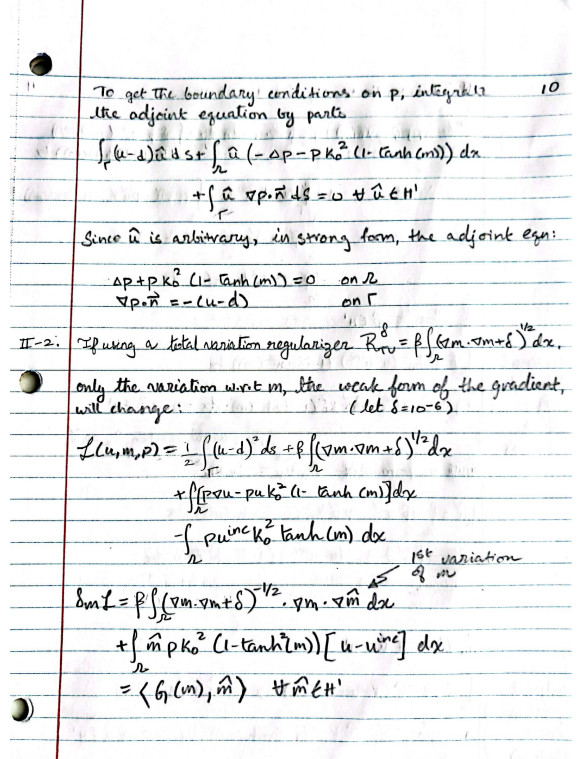 10
To get the boundary conditions on p, integrate
the adjoint equation by parts
∫_Γ (u-d)û ds + ∫_Ω û (-Δp - p k₀² (1- tanh(m))) dx
+ ∫_Γ û ∇p·n⃗ ds = 0 ∀ û ∈ H'
Since û is arbitrary, in strong form, the adjoint eqn:
Δp + p k₀² (1- tanh(m)) = 0 on Ω
∇p·n⃗ = -(u-d) on Γ
II-2: If using a total variation regularizer R_TV^δ = β∫_Ω (∇m·∇m+δ)^1/2 dx,
only the variation w.r.t m, the weak form of the gradient,
will change: (let δ=10-6)
L(u,m,p) = 1/2 ∫_Γ (u-d)² ds + β ∫_Ω (∇m·∇m+δ)^1/2 dx
+ ∫_Ω [p∇u - pu k₀² (1- tanh(m)] dx
- ∫_Ω pu^inc k₀² tanh(m) dx
1st variation
of m
δmL = β ∫_Ω (∇m·∇m+δ)^-1/2 · ∇m · ∇m̂ dx
+ ∫_Ω m̂ p k₀² (1-tanh²(m)) [u-u^inc] dx
= ⟨G(m), m̂⟩ ∀ m̂ ∈ H'